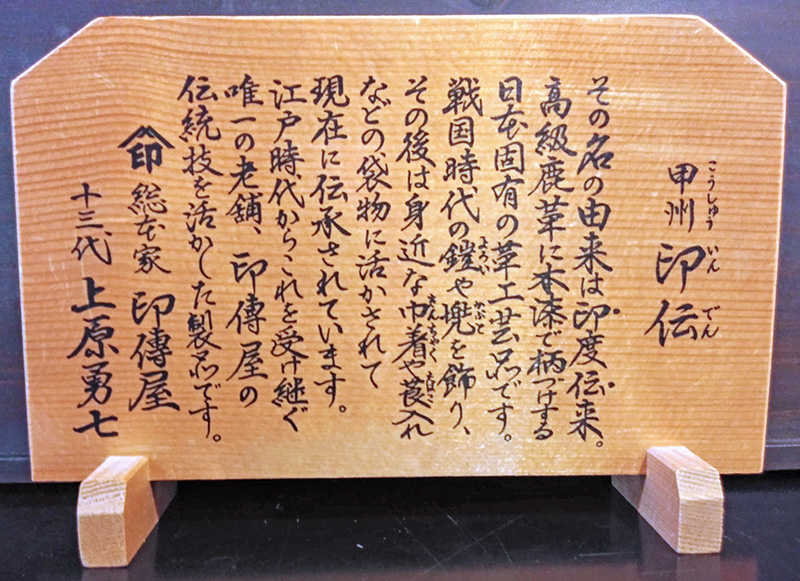 甲州印伝
こうしゅう いん でん
その名の由来は印度伝来。
高級鹿革に本漆で柄づけする
日本固有の革工芸品です。
戦国時代の鎧や兜を飾り、
よろい かぶと
その後は身近な巾着や莨入れ
きんちゃく たばこ
などの袋物に活かされて
現在に伝承されています。
江戸時代からこれを受け継ぐ
唯一の老舗、印傳屋の
伝統技を活かした製品です。
印 総本家 印傳屋
十三代 上原勇七